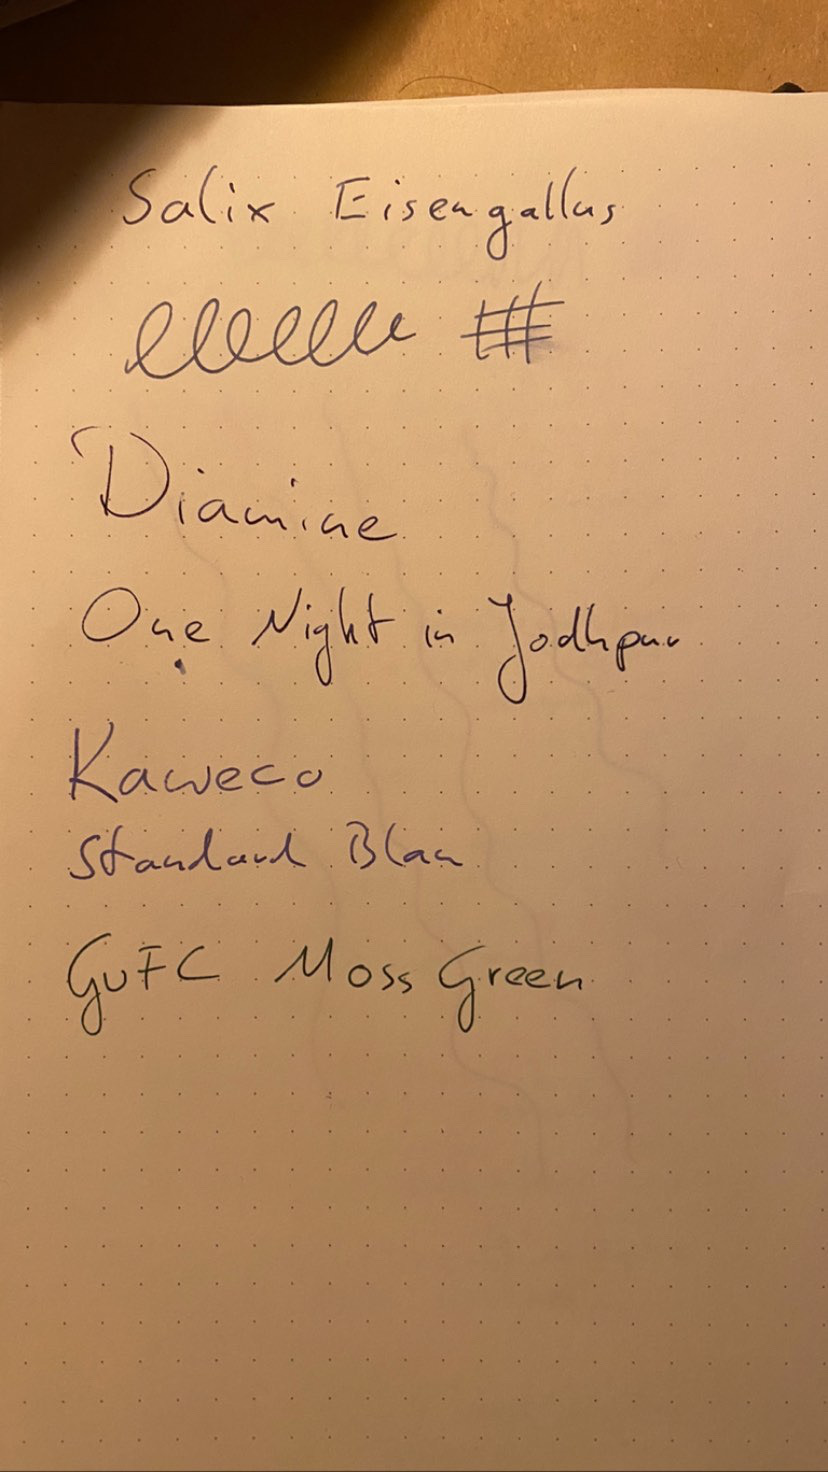 Salix Eisengallus
Diamine
One Night in Jodhpur
Kaweco
Standard Blau
GvFC Moss Green